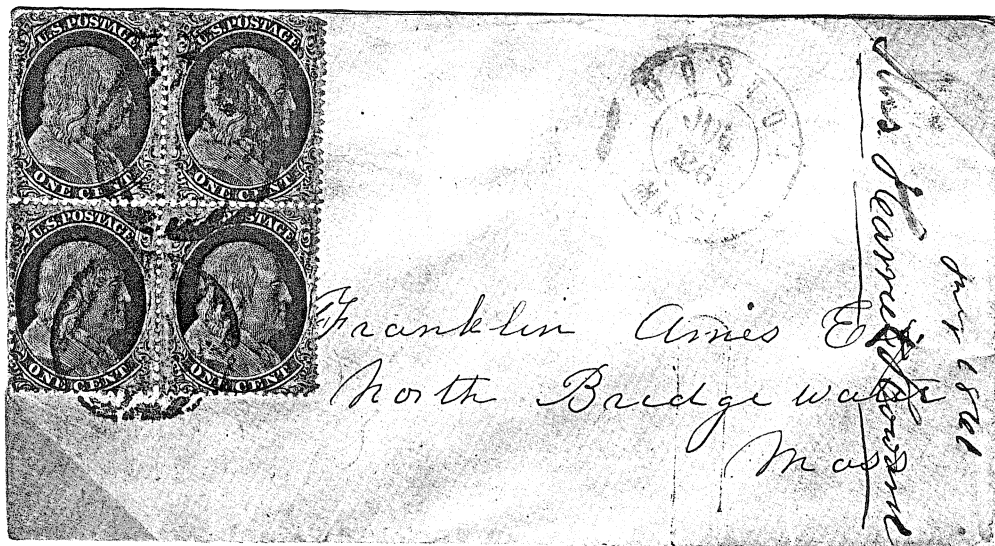 U.S. POSTAGE
ONE CENT
U.S. POSTAGE
ONE CENT
U.S. POSTAGE
ONE CENT
U.S. POSTAGE
ONE CENT
BOSTO
JUL
MASS
Franklin Ames E
North Bridgewater
Mass
Harriet